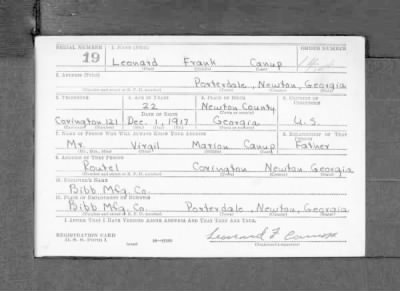 SERIAL NUMBER 1. NAME (Print) ORDER NUMBER
19 Leonard Frank Canup
(First) (Middle) (Last)
2. ADDRESS (Print)
Porterdale, Newton, Georgia
3. TELEPHONE 4. AGE IN YEARS 5. PLACE OF BIRTH 6. COUNTRY OF CITIZENSHIP
22 Newton County
DATE OF BIRTH
Covington 121 Dec. 1, 1917 Georgia U.S.
7. NAME OF PERSON WHO WILL ALWAYS KNOW YOUR ADDRESS 8. RELATIONSHIP OF THAT PERSON
Mr. Virgil Marion Canup Father
(Mr., Mrs., Miss) (First) (Middle) (Last)
9. ADDRESS OF THAT PERSON
Route1 Covington Newton Georgia
10. EMPLOYER'S NAME
Bibb Mfg. Co.
11. PLACE OF EMPLOYMENT OR BUSINESS
Bibb Mfg. Co. Porterdale, Newton, Georgia
I AFFIRM THAT I HAVE VERIFIED ABOVE ANSWERS AND THAT THEY ARE TRUE.
REGISTRATION CARD
D. S. S. FORM 1 Leonard F Canup
(Registrant's signature)